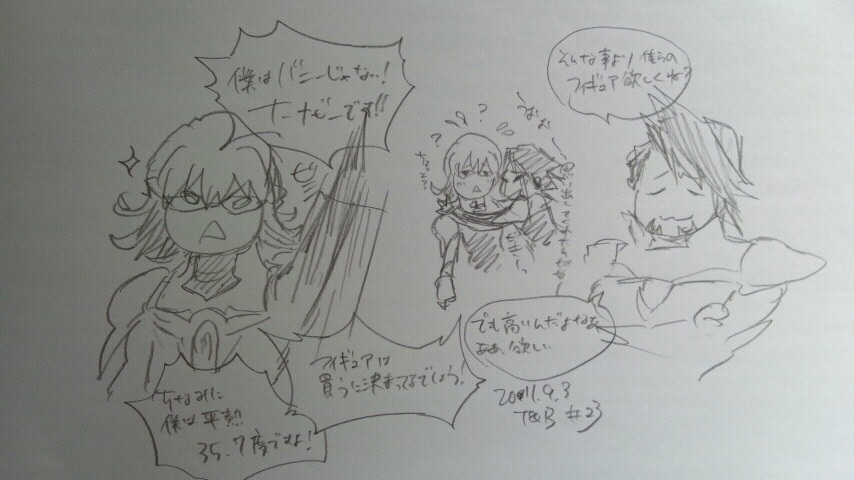 僕はバニーじゃない!
バーナビーです!!
そんな事より俺らの
フィギュア欲しくね?
でも高いんだよなぁ
ああ、欲しい…
フィギュアは
買うに決まってるでしょう!
ちなみに
僕は平熱
35.7度ですよ!
2011.9.3
T&B #23